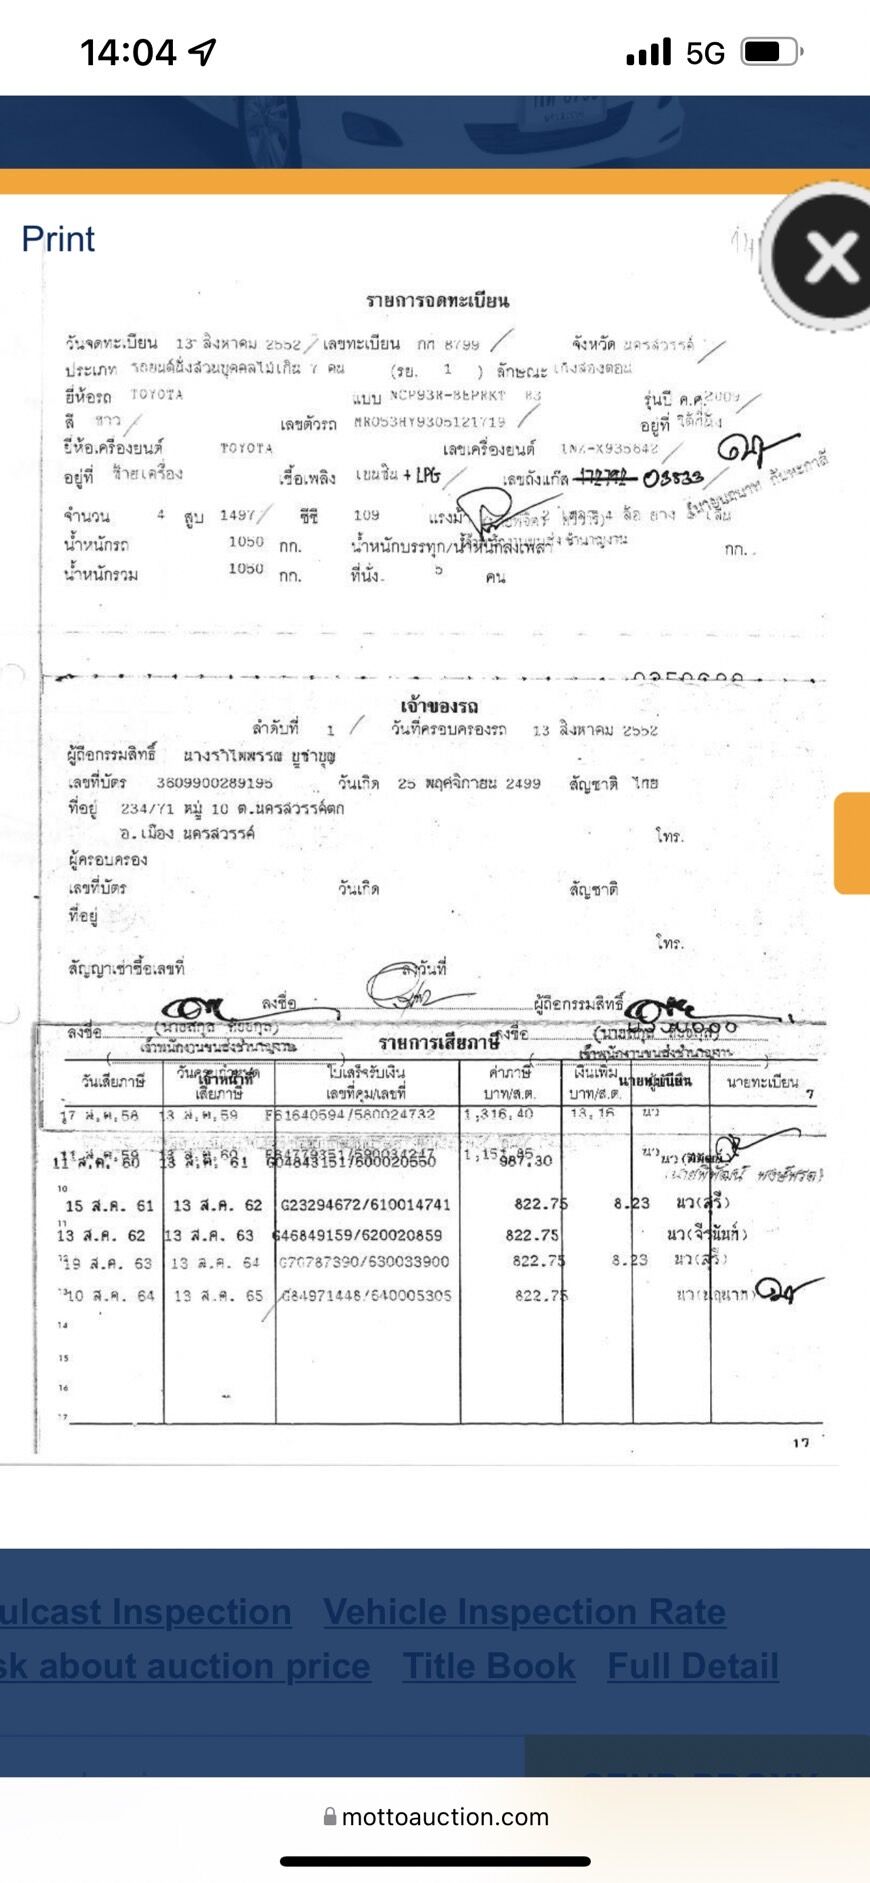 14:04 5G
Print
รายการจดทะเบียน
วันจดทะเบียน 13 สิงหาคม 2552 เลขทะเบียน กต 8799 จังหวัด นครสวรรค์
ประเภท รถยนต์นั่งส่วนบุคคลไม่เกิน 7 คน (รย. 1 ) ลักษณะ เก๋งสองตอน
ยี่ห้อรถ TOYOTA แบบ NCP93R-BEPRKT รุ่นปี ค.ศ. 2009
สี ขาว เลขตัวรถ MR053HY9305121719 อยู่ที่
ยี่ห้อเครื่องยนต์ TOYOTA เลขเครื่องยนต์ 1NZ-X935642
อยู่ที่ ซ้ายเครื่อง เชื้อเพลิง เบนซิน + LPG เลขถังแก๊ส 03533
จำนวน 4 สูบ 1497 ซีซี 109 แรงม้า 4 ล้อ ยาง เส้น
น้ำหนักรถ 1050 กก. น้ำหนักบรรทุก/น้ำหนักลงเพลา กก.
น้ำหนักรวม 1050 กก. ที่นั่ง 5 คน
เจ้าของรถ
ลำดับที่ 1 วันที่ครอบครองรถ 13 สิงหาคม 2552
ผู้ถือกรรมสิทธิ์ นางรำไพพรรณ บูชาบุญ
เลขที่บัตร 3609900289195 วันเกิด 25 พฤศจิกายน 2499 สัญชาติ ไทย
ที่อยู่ 234/71 หมู่ 10 ต.นครสวรรค์ตก
อ.เมือง นครสวรรค์ โทร.
ผู้ครอบครอง
เลขที่บัตร วันเกิด สัญชาติ
ที่อยู่
โทร.
สัญญาเช่าซื้อเลขที่ ลงวันที่
ลงชื่อ ผู้ถือกรรมสิทธิ์
ลงชื่อ รายการเสียภาษี ลงชื่อ
เจ้าพนักงานขนส่งชำนาญงาน เจ้าพนักงานขนส่งชำนาญงาน
วันเสียภาษี ใบเสร็จรับเงิน ค่าภาษี เงินเพิ่ม นายทะเบียน
เสียภาษี เลขที่คุม/เลขที่ บาท/ส.ต. บาท/ส.ต. 7
17 ส.ค. 58 13 ส.ค. 59 F61640594/580024732 1,316.40 13.16 นว
11 ส.ค. 60 13 ส.ค. 61 G04843151/600020550 987.30
10
15 ส.ค. 61 13 ส.ค. 62 G23294672/610014741 822.75 8.23 นว(สุรี)
11
13 ส.ค. 62 13 ส.ค. 63 G46849159/620020859 822.75 นว(จีรนันท์)
12
19 ส.ค. 63 13 ส.ค. 64 G70787390/630033900 822.75 8.23 นว(สุรี)
13
10 ส.ค. 64 13 ส.ค. 65 G84971448/640005305 822.75
14
15
16
17
17
ulcast Inspection Vehicle Inspection Rate
sk about auction price Title Book Full Detail
mottoauction.com